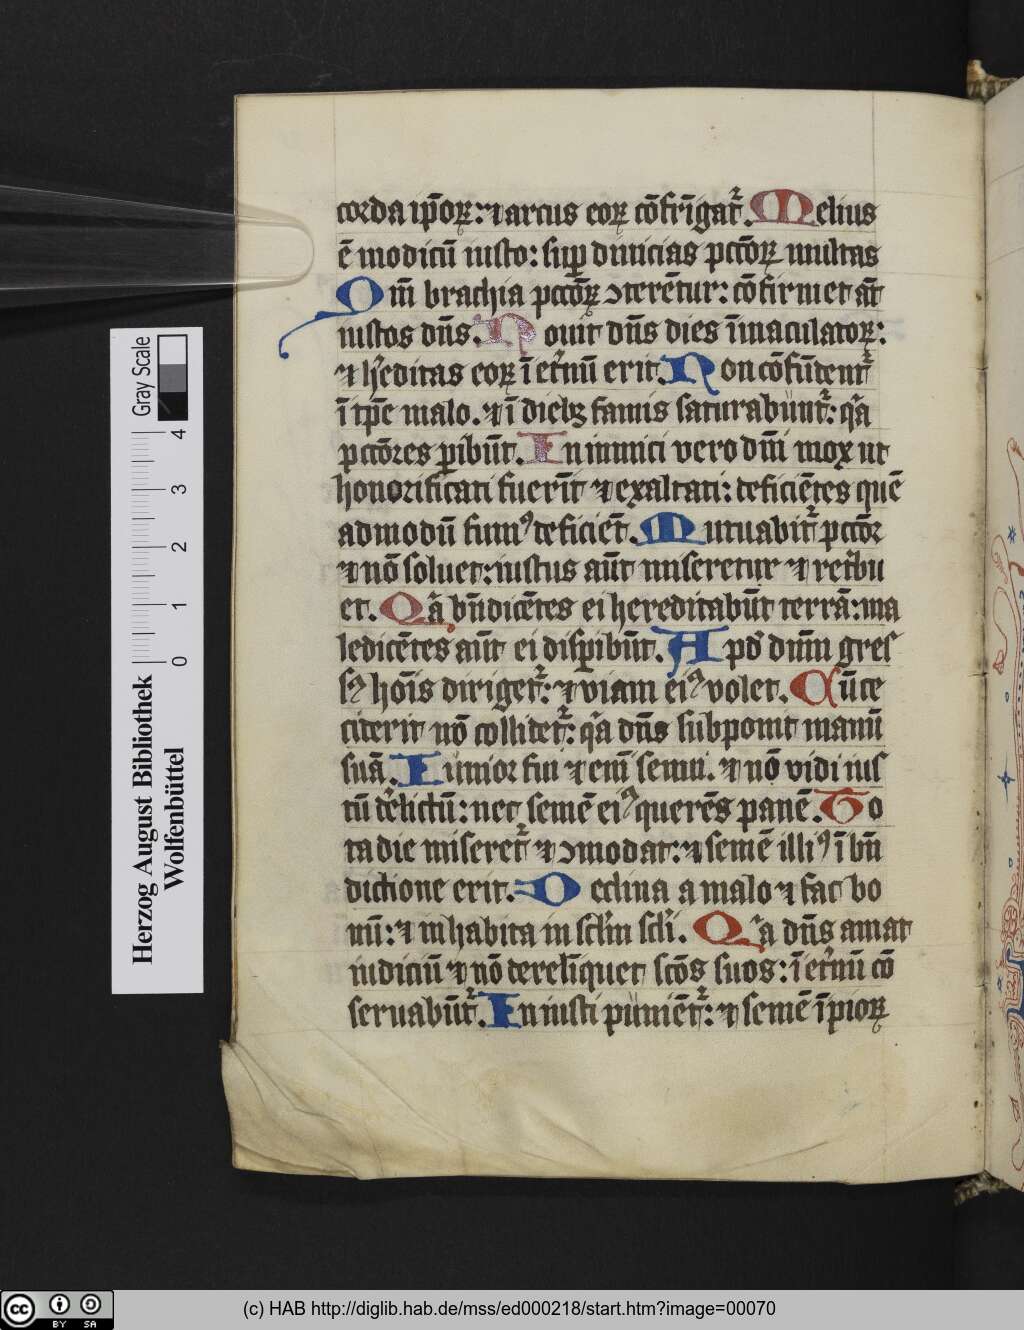 corda ip̄oꝝ: ⁊ arcus eoꝝ cōfrīgat᷑. Melius
ē modicū iusto: suꝑ diuicias pctōꝝ multas
Qm̄ brachia pctōꝝ ↄterētur: cōfirmet aūt
iustos dn̄s. Nouit dn̄s dies īmaculatoꝝ:
⁊ h᷑editas eoꝝ ī et᷑nū erit. Non cōfūdent᷑
ī tp̄e malo. ⁊ ī diebꝫ famis saturabūnt᷑: qͥa
pctōres ꝑibūt. Inimici vero dn̄i mox ut
honorificati fuerīt ⁊ exaltati: deficiētes quē
admodū fumꝰ deficiēt. Mutuabit᷑ pctōr
⁊ nō soluet: iustus aūt miseretur ⁊ ret᷑bu
et. Qͥa bn̄dicētes ei hereditabūt terrā: ma
ledicētes aūt ei disꝑibūt. Apd̓ dūm gres
sꝰ hoīs diriget᷑: ⁊ viam eiꝰ volet. Cū ce
ciderit nō collidet᷑: qͥa dn̄s subponit manū
suā. Iunior fui ⁊ em̄ senui. ⁊ nō vidi ius
tū de᷑lictū: nec semē eiꝰ querēs panē. To
ta die miseret᷑ ⁊ ↄmodat: ⁊ semē illiꝰ ī bn̄
dictione erit. Declina a malo ⁊ fac bo
nū: ⁊ inhabita in scl̄m scl̄i. Qͥa dn̄s amat
iudiciū ⁊ nō derelīquet scōs suos: ī et᷑nū cō
seruabūt᷑. Iniusti puniēt᷑: ⁊ semē īpioꝝ
Gray Scale
4
3
2
1
0
Herzog August Bibliothek
Wolfenbüttel
cc BY SA
(c) HAB http://diglib.hab.de/mss/ed000218/start.htm?image=00070